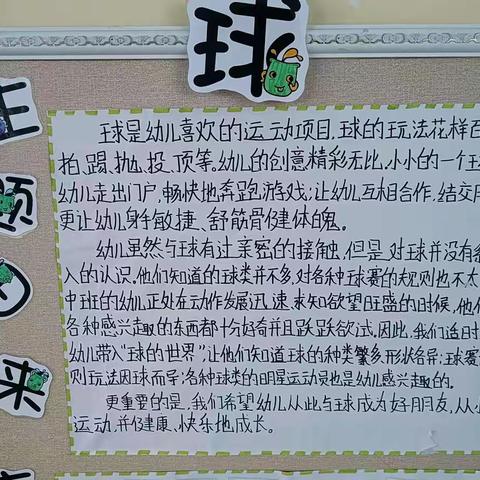 球
主
题
由
来
球是幼儿喜欢的运动项目,球的玩法花样百
拍、踢、抛、投、顶等。幼儿的创意精彩无比,小小的一个球
幼儿走出门户,畅快地奔跑游戏;让幼儿互相合作,结交朋
更让幼儿身手敏捷、舒筋骨健体魄。
幼儿虽然与球有过亲密的接触,但是对球并没有
入的认识。他们知道的球类并不多,对各种球赛的规则也不太
中班的幼儿正处在动作发展迅速、求知欲望旺盛的时候,他们
各种感兴趣的东西都十分好奇并且跃跃欲试。因此,我们适时
幼儿带入“球的世界”,让他们知道球的种类繁多形状各异;球赛
则玩法因球而异;各种球类的明星运动员也是幼儿感兴趣的。
更重要的是,我们希望幼儿从此与球成为好朋友,从小
运动,并保健康、快乐地成长。